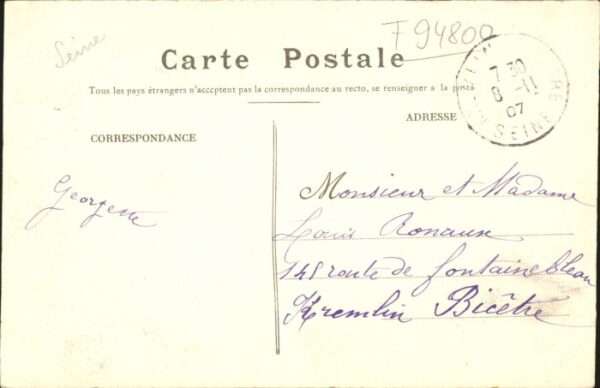 Seine
F 94800
Carte Postale
Tous les pays étrangers n'acceptent pas la correspondance au recto, se renseigner a la poste
CORRESPONDANCE
ADRESSE
7 30
8 - 11
07
SEINE
Georgette
Monsieur et Madame
Louis Ronaux
148 route de fontainebleau
Kremlin Bicêtre